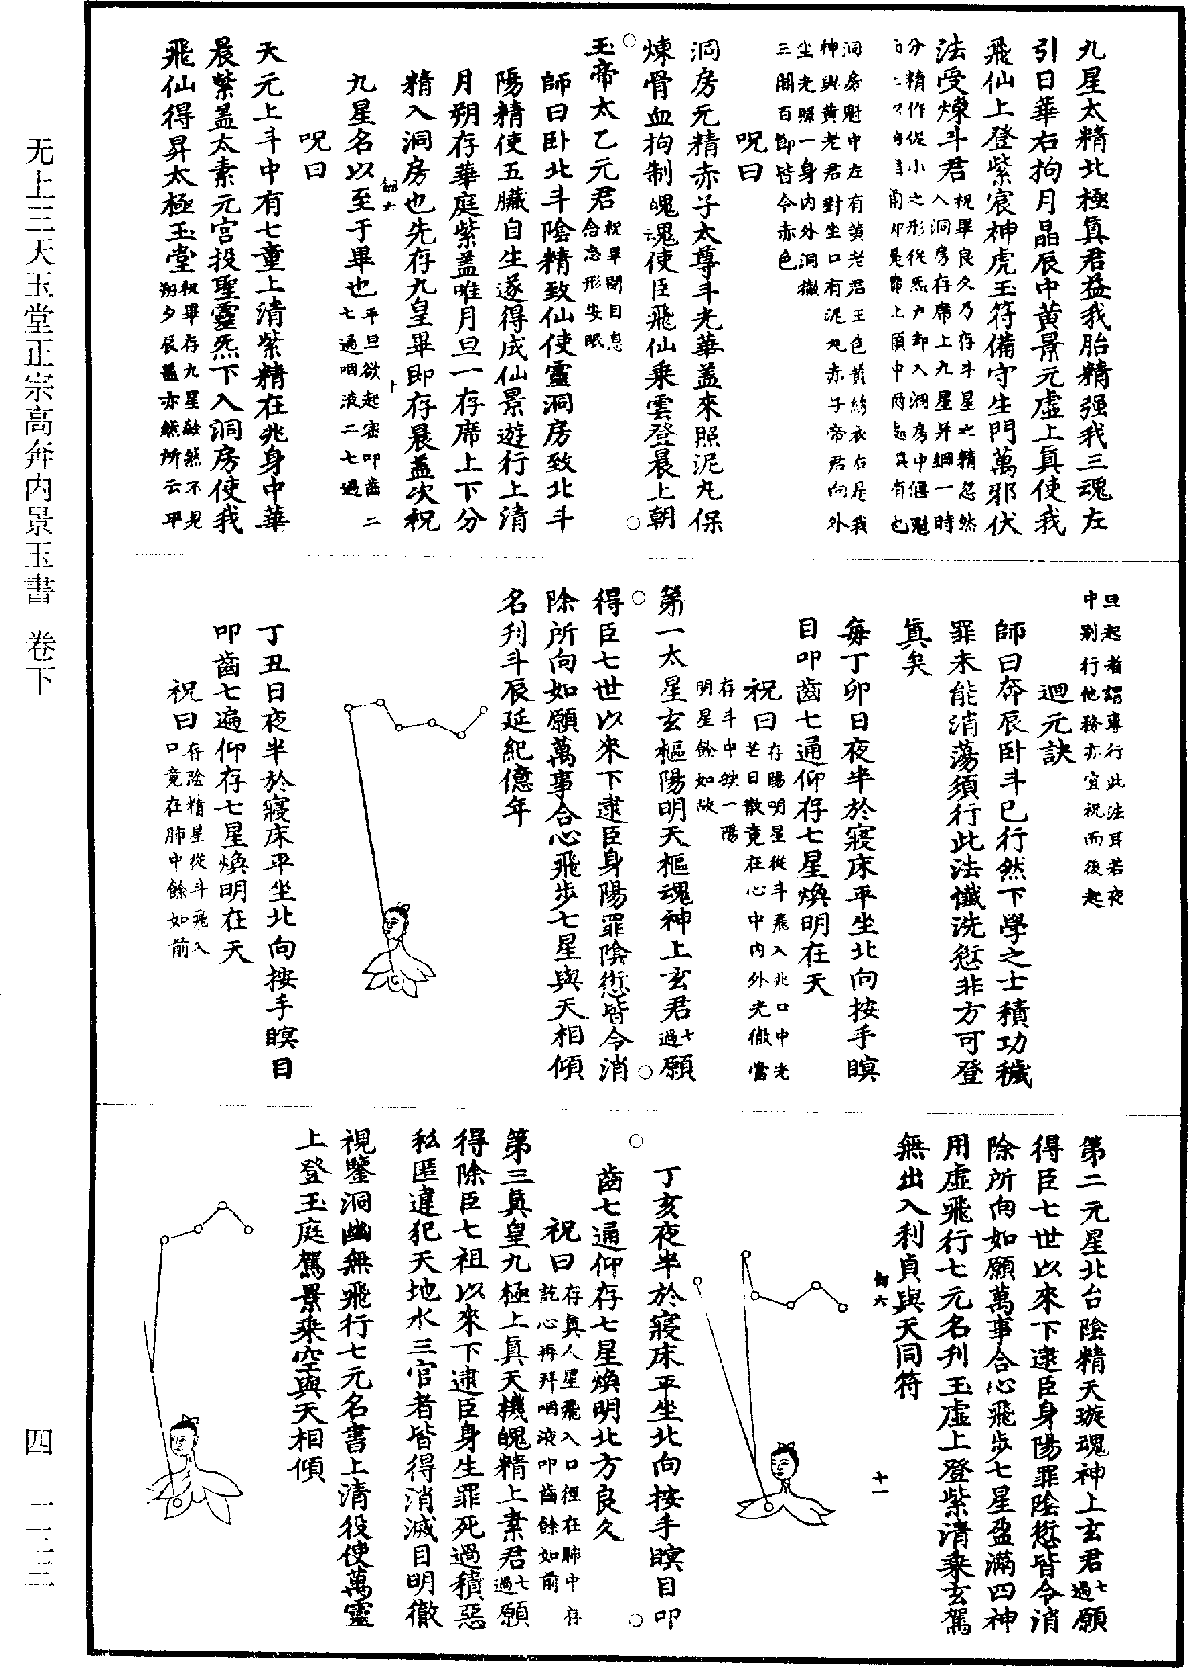 九星太精北極真君益我胎精强我三魂左
引日華右拘月晶辰中黄景元虛上真使我
飛仙上登紫宸神虎玉符備守生門萬邪伏
法受煉斗君祝畢良久乃存斗星之精忽然
分精作從小之形從炁户却入洞房中偃魁
入洞房存席上九星并綱一時
洞房魁中左有黄老君王色黄綃衣在是我
神與黄老君對坐口有泥丸赤子帝君向外
尘光照一身内外洞徹
三關百節皆令赤色
呪曰
洞房元精赤子太尊斗光華蓋來照泥丸保
煉骨血拘制魂魄使臣飛仙乘雲登晨上朝
玉帝太乙元君祝畢閉目息
念忘形安眠
師曰卧北斗陰精致仙使靈洞房致北斗
陽精使五臟自生遂得成仙景遊行上清
月朔存華庭紫蓋唯月旦一存席上下分
精入洞房也先存九皇畢即存晨蓋次祝
九星名以至于畢也平旦欲起密叩齒二
七通咽液二七過
呪曰
天元上斗中有七童上清紫精在兆身中華
晨紫蓋太素元宫投聖靈炁下入洞房使我
飛仙得昇太極玉堂祝畢存九星融然不見
朔夕辰蓋亦然所云平
旦起者謂專行此法耳若夜
中别行他務亦宜祝而後起
迴元訣
師曰奔辰卧斗已行然下學之士積功穢
罪未能消蕩須行此法懺洗愆非方可登
真矣
每丁卯日夜半於寢床平坐北向按手瞑
目叩齒七通仰存七星煥明在天
祝曰存陽明星從斗飛入兆口中光
芒日散竟在心中内外光徹當
存斗中缺一陽
明星餘如故
第一太星玄樞陽明天樞魂神上玄君七過願
得臣七世以來下逮臣身陽罪陰愆皆令消
除所向如願萬事合心飛步七星與天相傾
名刋斗辰延紀億年
丁丑日夜半於寢床平坐北向按手瞑目
叩齒七遍仰存七星煥明在天
祝曰存陰精星從斗飛入
口竟在肺中餘如前
第二元星北台陰精天璇魂神上玄君七過願
得臣七世以來下逮臣身陽罪陰愆皆令消
除所向如願萬事合心飛步七星盈滿四神
用虛飛行七元名刋玉虛上登紫清乘玄駕
無出入利貞與天同符
十一
丁亥夜半於寢床平坐北向按手瞑目叩
齒七通仰存七星煥明北方良久
祝曰存真人星飛入口徑在肺中存
訖心再拜咽液叩齒餘如前
第三真皇九極上真天機魄精上素君七過願
得除臣七祖以來下逮臣身生罪死過積惡
私匿違犯天地水三官者皆得消滅目明徹
視鑒洞幽無飛行七元名書上清役使萬靈
上登玉庭駕景乘空與天相傾
无上三天玉堂正宗高奔内景玉書 卷下
四 一二三